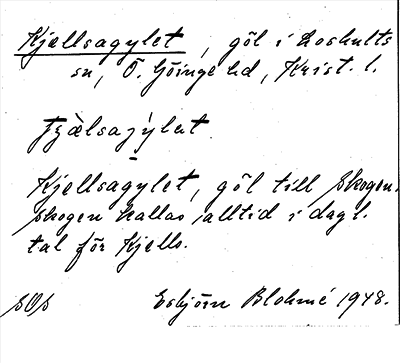 Kjellsagylet, göl i Loshults
sn, Ö. Göinge hd, Krist. l.
Kjellsagylet, göl till skogen.
skogen kallas alltid i dagl.
tal för Kjells.
Esbjörn Blohmé 1948.